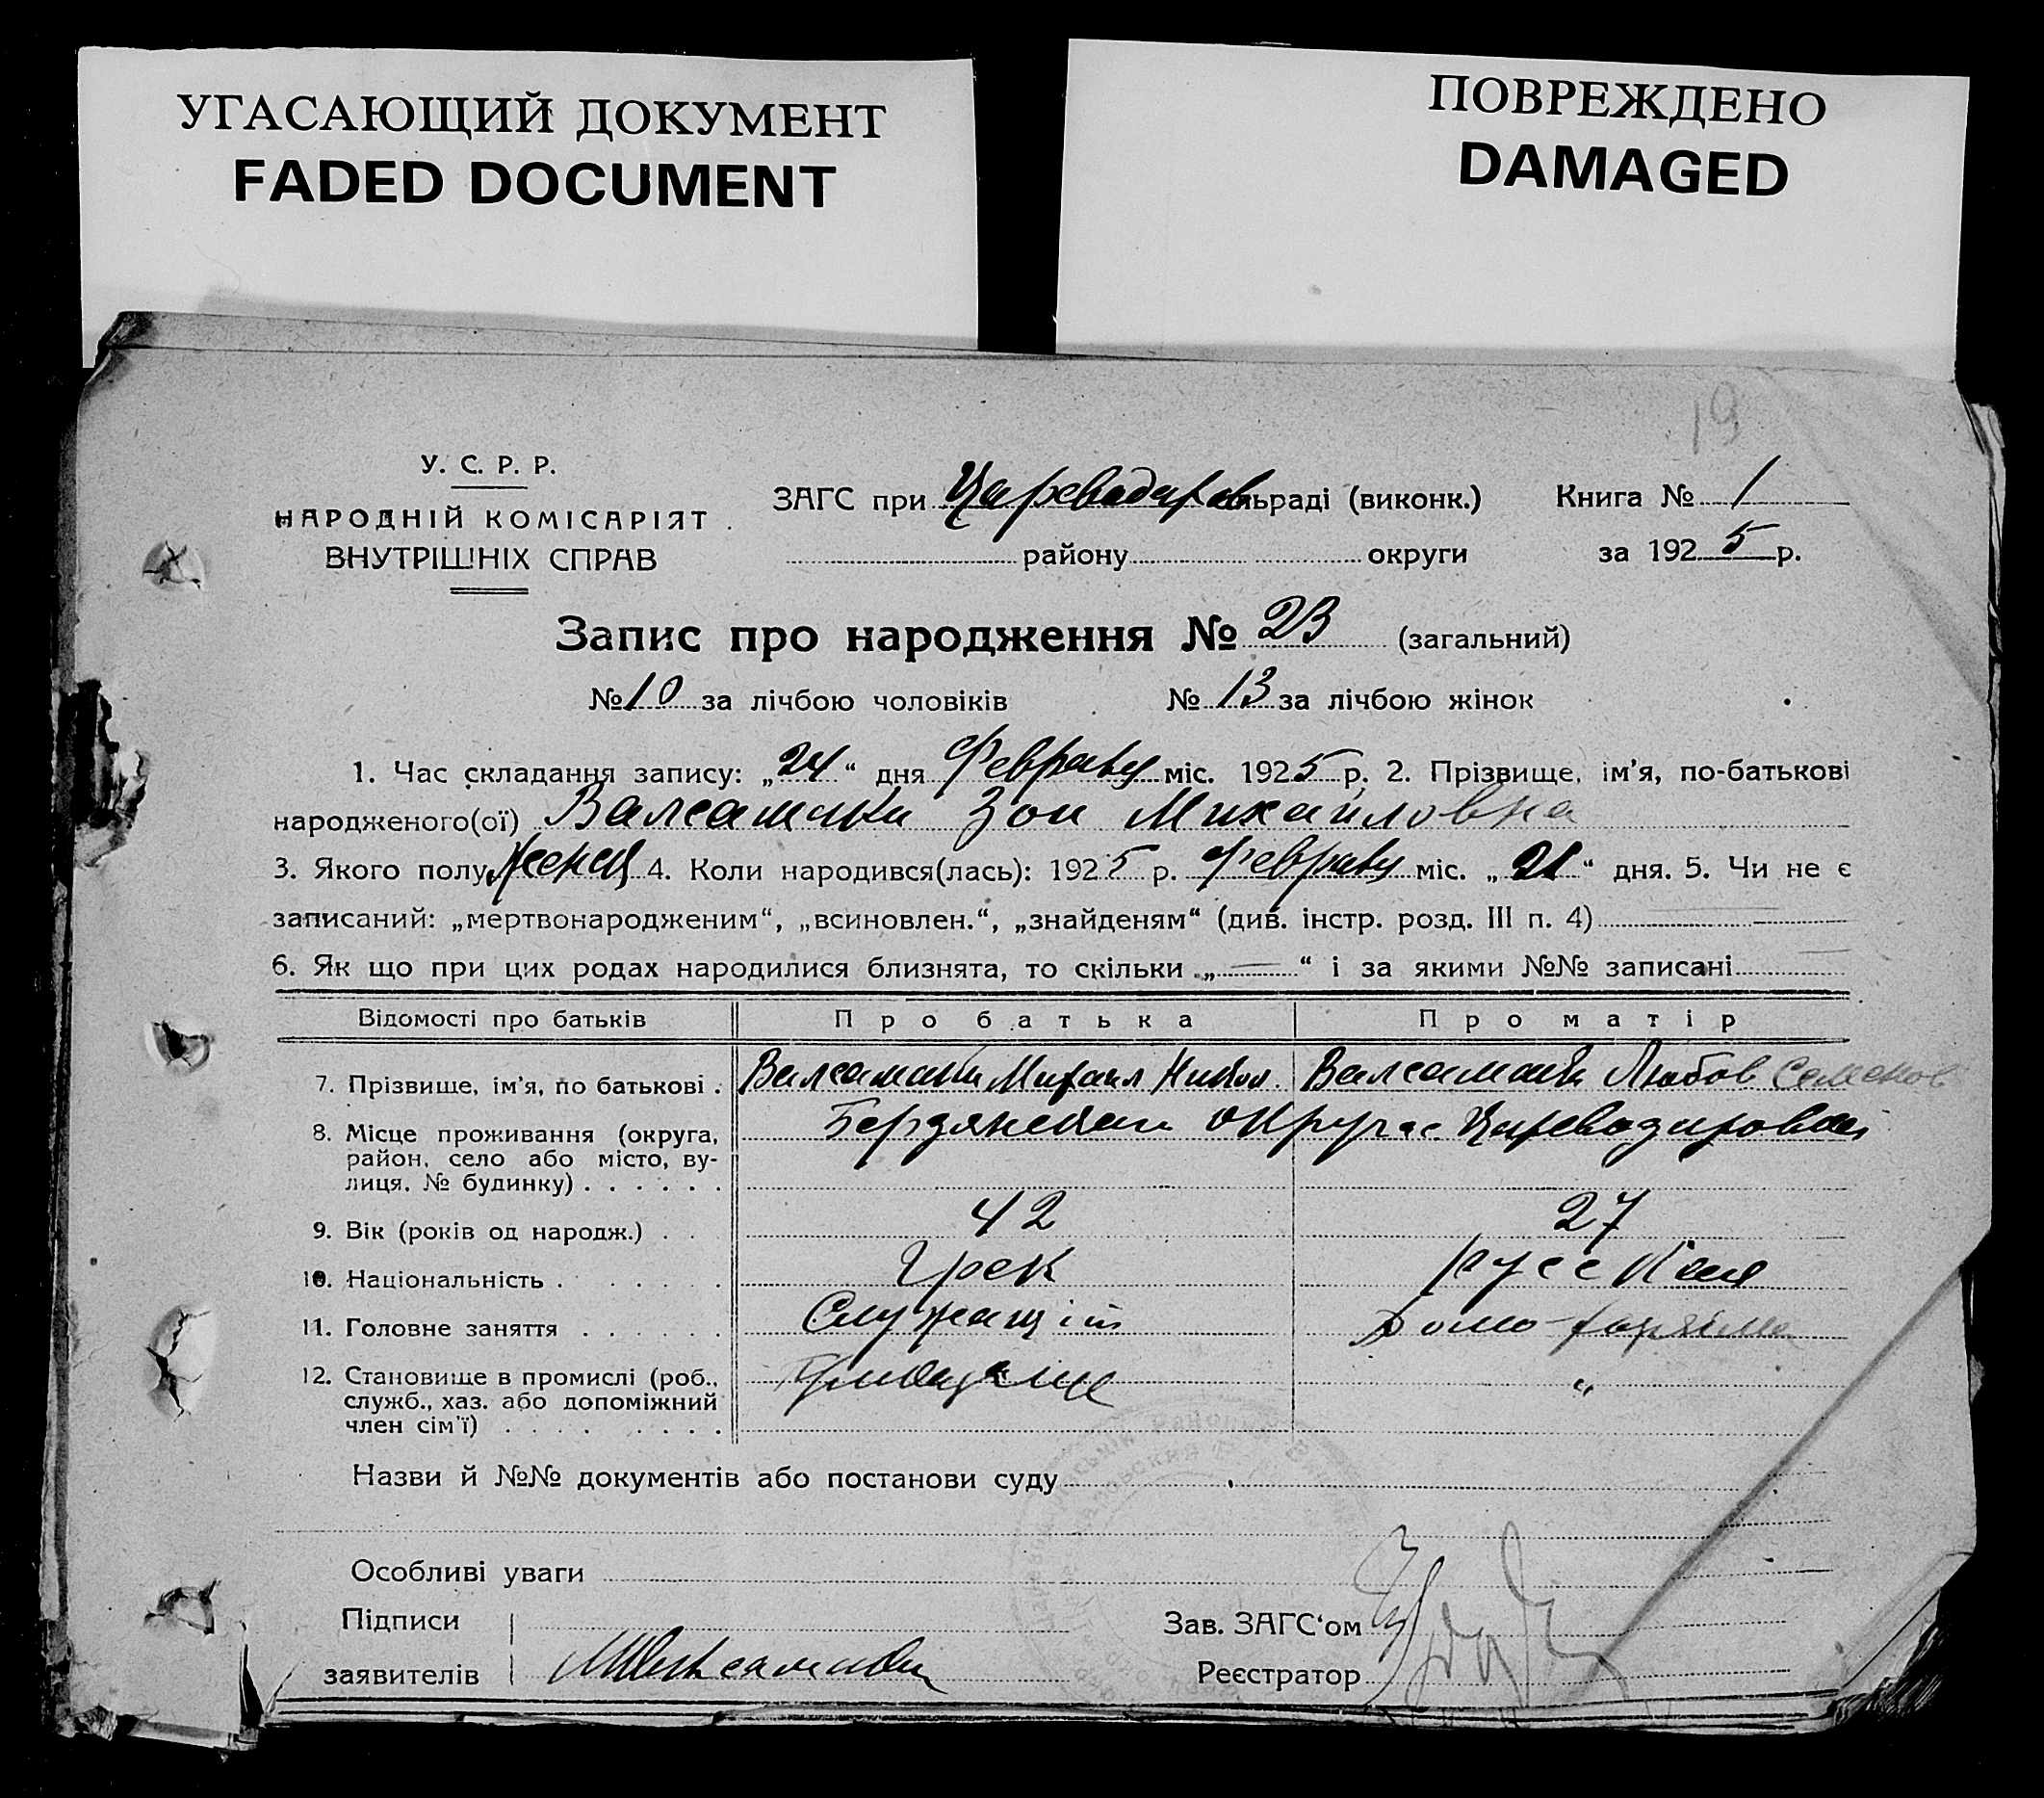 УГАСАЮЩИЙ ДОКУМЕНТ
FADED DOCUMENT
ПОВРЕЖДЕНО
DAMAGED
19
У. С. Р. Р.
НАРОДНІЙ КОМІСАРІЯТ
ВНУТРІШНІХ СПРАВ
ЗАГС при Царевадаров льраді (виконк.)
району округи
Книга № 1
за 1925 р.
Запис про народження № 23 (загальний)
№ 10 за лічбою чоловіків № 13 за лічбою жінок
1. Час складання запису: „24“ дня Февраля міс. 1925 р. 2. Прізвище, ім’я, по-батькові
народженого(ої) Валсамаки Зои Михайловна
3. Якого полу женск 4. Коли народився(лась): 1925 р. Февраля міс. „21“ дня. 5. Чи не є
записаний: „мертвонародженим“, „всиновлен.“, „знайденям“ (див. інстр. розд. III п. 4)
6. Як що при цих родах народилися близнята, то скільки „—“ і за якими №№ записані
Відомості про батьків Про батька Про матір
7. Прізвище, ім’я, по батькові . Валсамаки Михаил Никол. Валсамаки Любов Семенов
8. Місце проживання (округа, район, село або місто, вулиця, № будинку) . . . . . . Бердянской округе Царевадаровка
9. Вік (років од народж.) . . 42 27
10. Національність . . . . . . Грек русская
11. Головне заняття . . . . . . Служащій Домо-
12. Становище в промислі (роб., "
служб., хаз. або допоміжний
член сім’ї) . . . . . . . .
Назви й №№ документів або постанови суду
Особливі уваги
Підписи
заявителів МВалсамаки
Зав. ЗАГС‘ом
Реєстратор